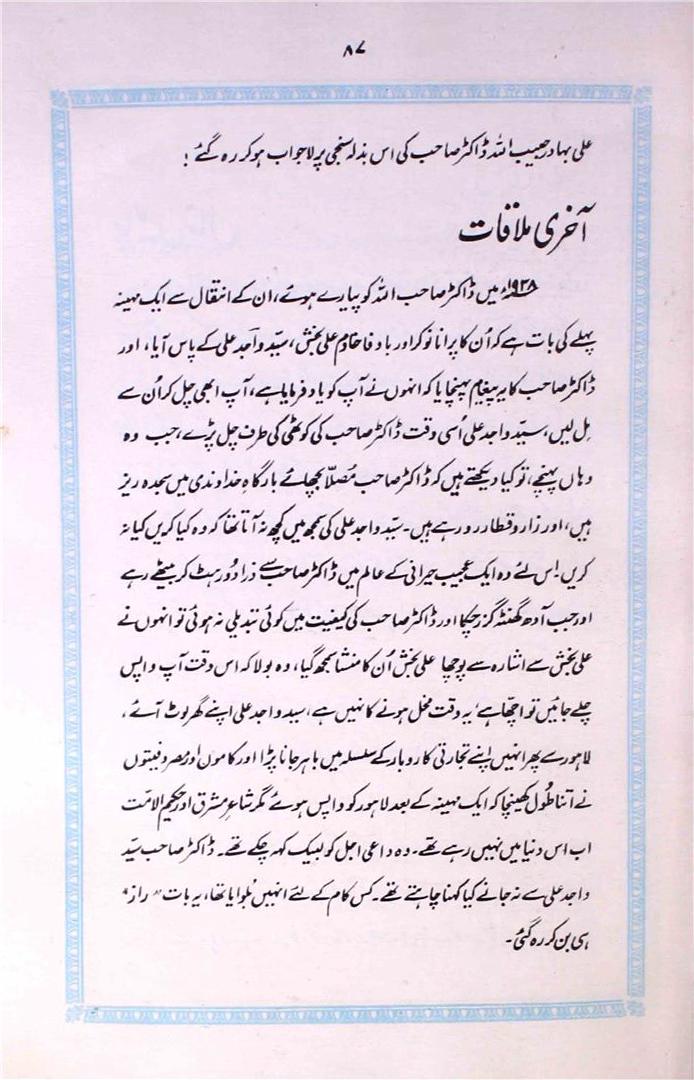 ۸۷
علی بہادر حبیب اللہ ڈاکٹر صاحب کی اس بذلہ سنجی پر لاجواب ہو کر رہ گئے !
آخری ملاقات
۱۹۳۸ء میں ڈاکٹر صاحب اللہ کو پیارے ہوئے، ان کے انتقال سے ایک مہینہ
پہلے کی بات ہے کہ اُن کا پرانا نوکر اور باوفا خادم علی بخش، سیّد واجد علی کے پاس آیا، اور
ڈاکٹر صاحب کا یہ پیغام پہنچایا کہ انہوں نے آپ کو یاد فرمایا ہے، آپ ابھی چل کر اُن سے
مِل لیں، سیّد واجد علی اُسی وقت ڈاکٹر صاحب کی کوٹھی کی طرف چل پڑے، جب وہ
وہاں پہنچے، تو کیا دیکھتے ہیں کہ ڈاکٹر صاحب مُصلّا بچھائے بارگاہِ خداوندی میں سجدہ ریز
ہیں، اور زار و قطار رو رہے ہیں۔ سیّد واجد علی کی سمجھ میں کچھ نہ آتا تھا کہ وہ کیا کریں کیا نہ
کریں۔ اس لئے وہ ایک عجیب حیرانی کے عالم میں ڈاکٹر صاحب سے ذرا دُور ہٹ کر بیٹھے رہے
اور جب آدھ گھنٹہ گزر چکا اور ڈاکٹر صاحب کی کیفیت میں کوئی تبدیلی نہ ہوئی تو انہوں نے
علی بخش سے اشارہ سے پوچھا علی بخش اُن کا منشا سمجھ گیا، وہ بولا کہ اس وقت آپ واپس
چلے جائیں تو اچھا ہے، یہ وقت مخل ہونے کا نہیں ہے، سید واجد علی اپنے گھر لوٹ آئے،
لاہور سے پھر انہیں اپنے تجارتی کاروبار کے سلسلہ میں باہر جانا پڑا اور کاموں اور مصروفیتوں
نے اتنا طُول کھینچا کہ ایک مہینہ کے بعد لاہور کو واپس ہوئے مگر شاعرِ مشرق اور حکیم الامّت
اب اس دنیا میں نہیں رہے تھے۔ وہ داعی اجل کو لبیک کہہ چکے تھے۔ ڈاکٹر صاحب سیّد
واجد علی سے نہ جانے کیا کہنا چاہتے تھے۔ کس کام کے لئے انہیں بُلوایا تھا، یہ بات "راز"
ہی بن کر رہ گئی۔